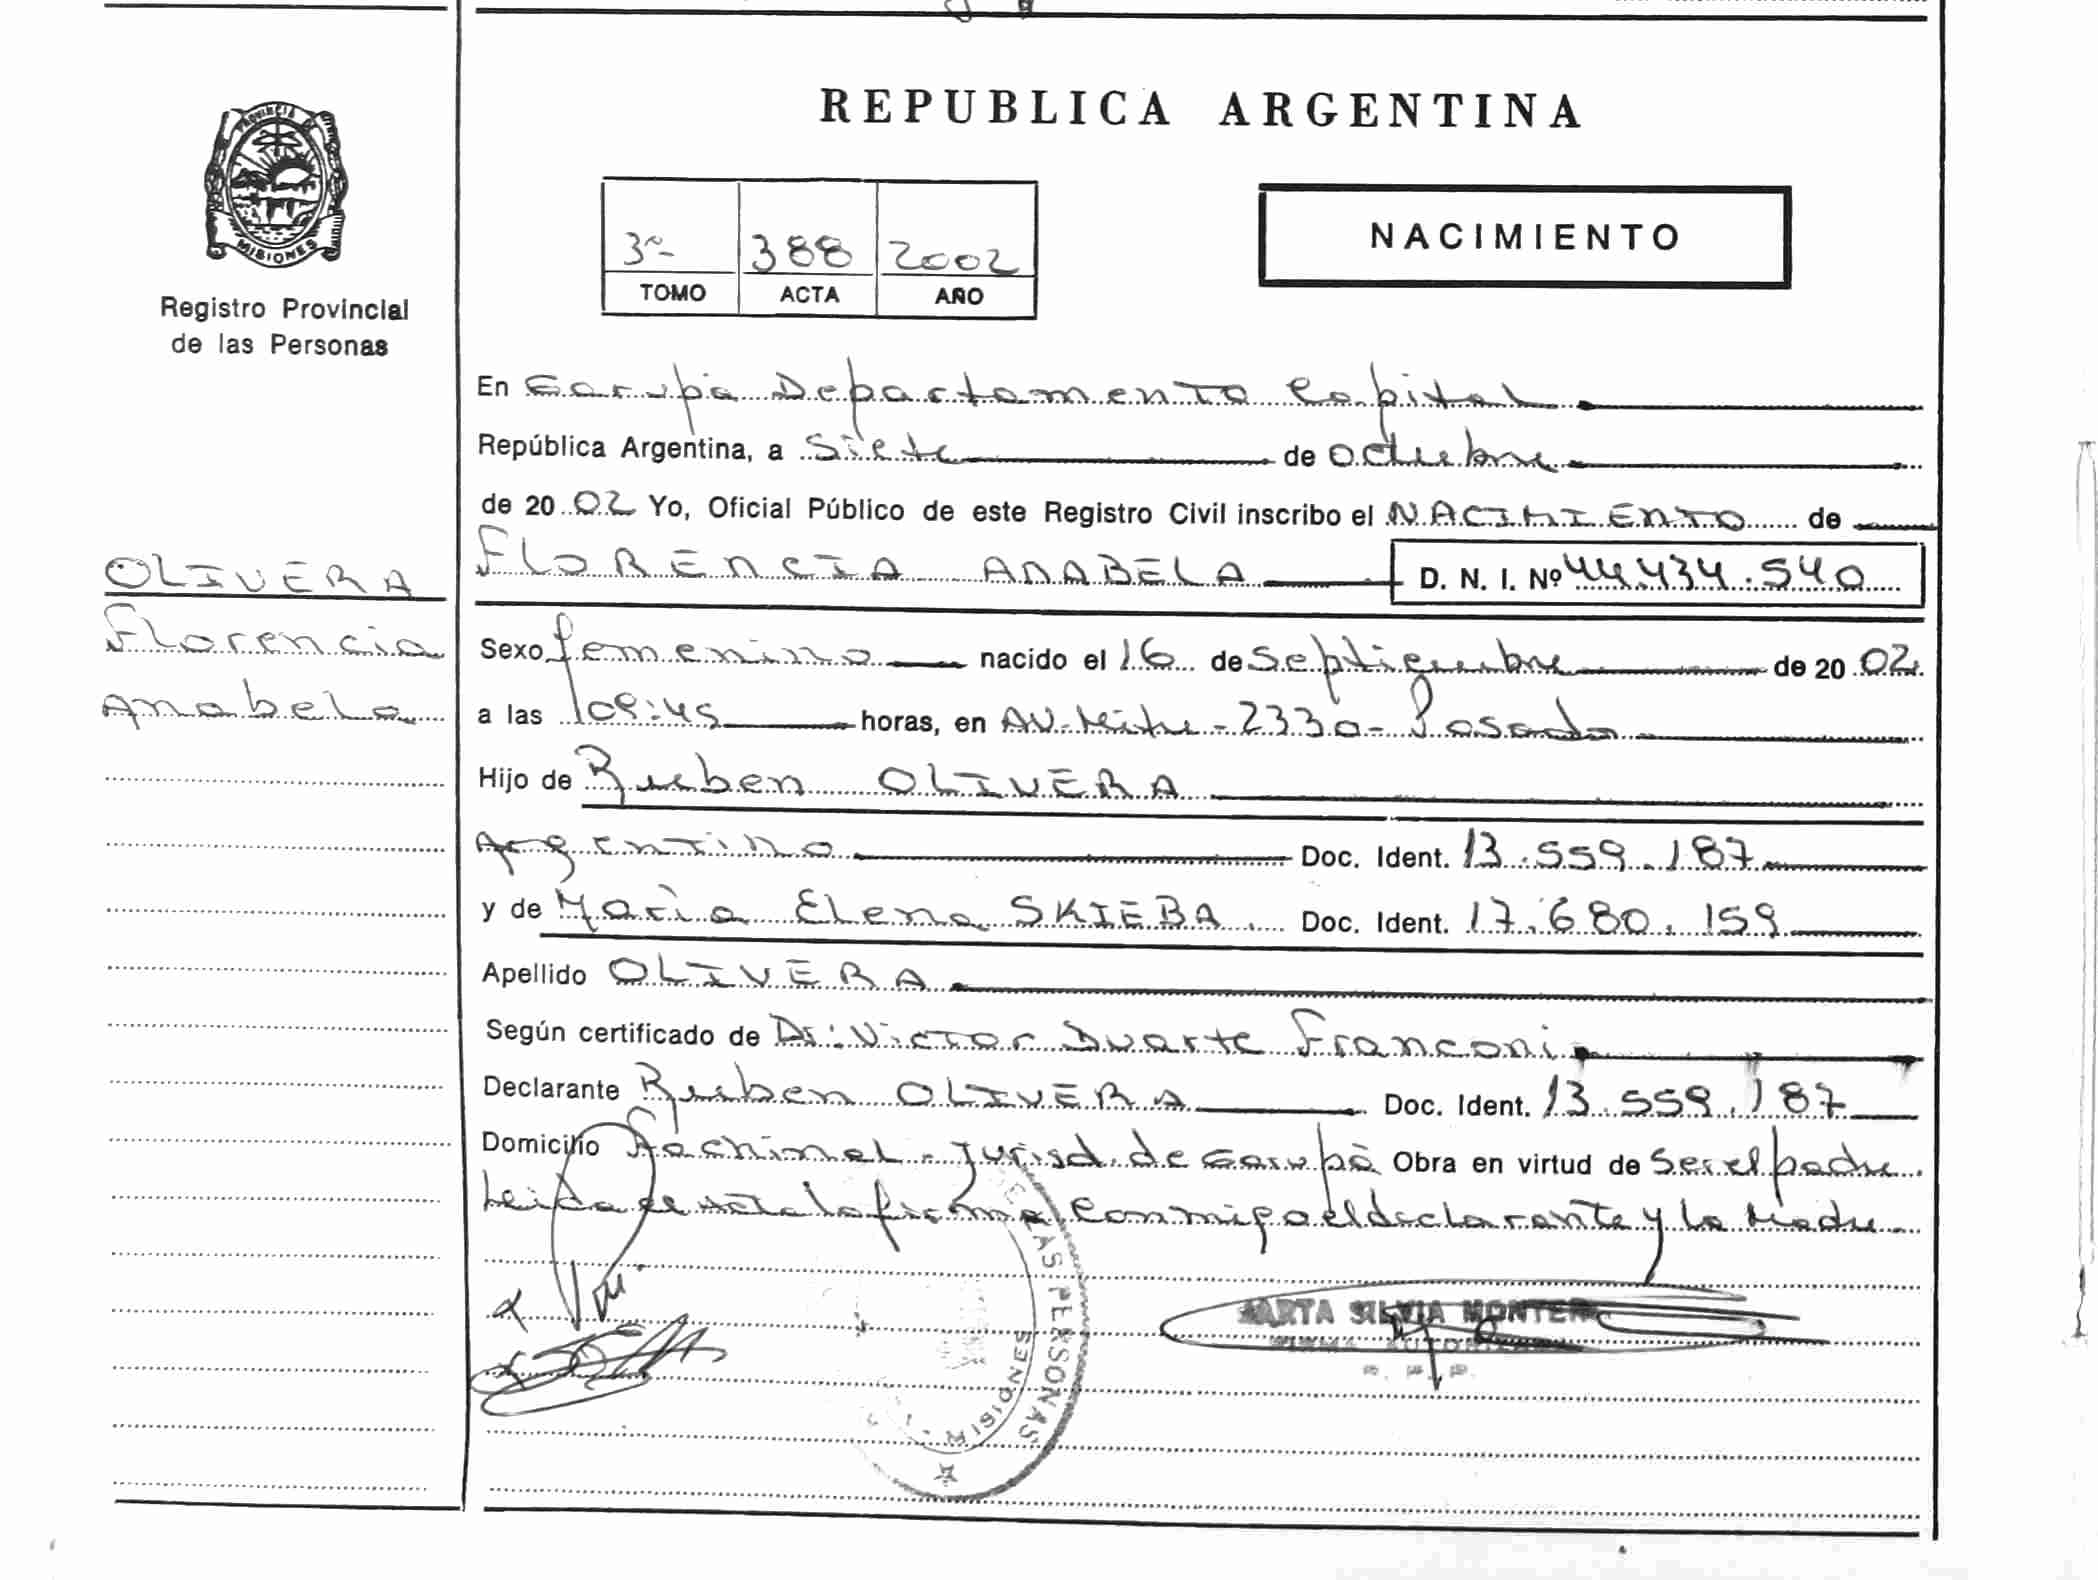 PROVINCIA DE
MISIONES
Registro Provincial
de las Personas
OLIVERA
Florencia
Anabela
REPUBLICA ARGENTINA
3º 388 2002
TOMO ACTA AÑO
NACIMIENTO
En Garupá Departamento Capital
República Argentina, a Siete de octubre
de 20 02 Yo, Oficial Público de este Registro Civil inscribo el NACIMIENTO de
FLORENCIA ANABELA D. N. I. Nº 44.434.540
Sexo femenino nacido el 16 de Septiembre de 20 02
a las 09:45 horas, en AV. Mitre - 2330 - Posadas
Hijo de Ruben OLIVERA
Argentino Doc. Ident. 13.559.187
y de María Elena SKIEBA. Doc. Ident. 17.680.159
Apellido OLIVERA
Según certificado de Dr: Victor Duarte Franconi
Declarante Ruben OLIVERA Doc. Ident. 13.559.187
Domicilio Fachinal - Jurisd. de Garupá Obra en virtud de Ser el padre.
Leida el acta la firma conmigo el declarante y la Madre
DE LAS PERSONAS
MISIONES
MARTA SILVIA MONTER
FIRMA AUTORIZADA
R. P. P.